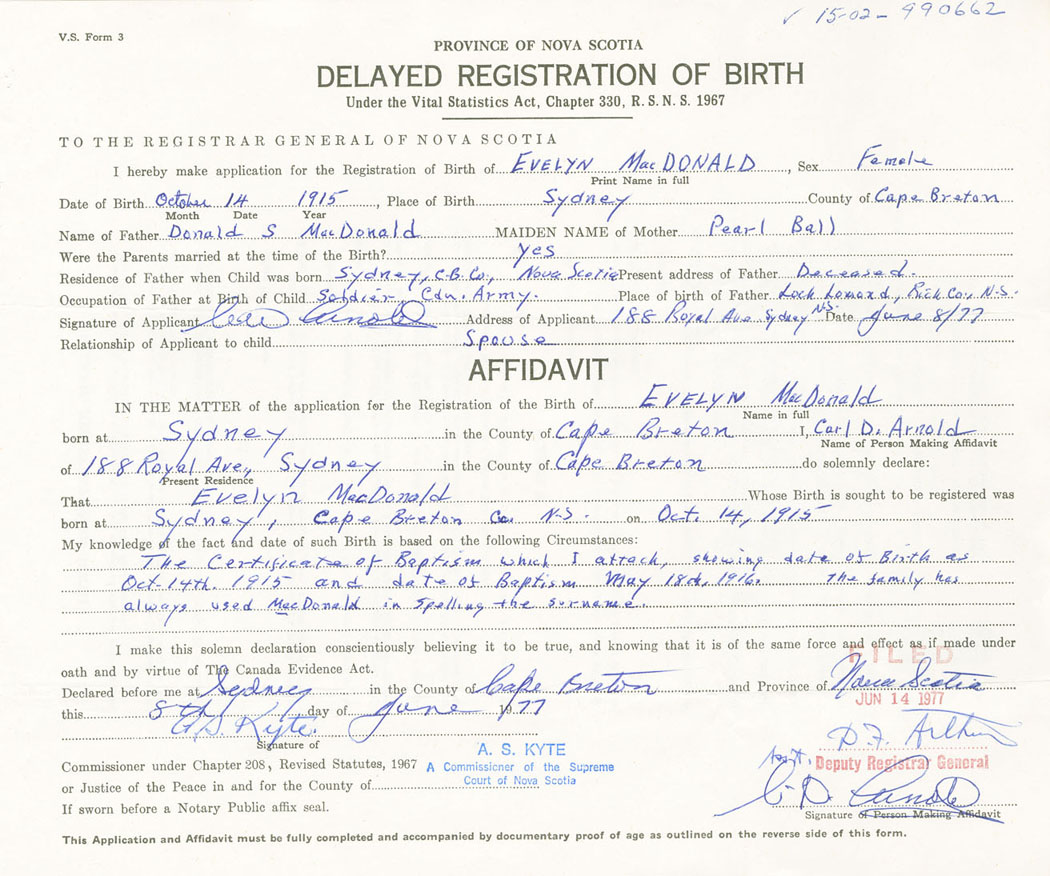 ✓ 15-02-990662
V.S. Form 3
PROVINCE OF NOVA SCOTIA
DELAYED REGISTRATION OF BIRTH
Under the Vital Statistics Act, Chapter 330, R. S. N. S. 1967
TO THE REGISTRAR GENERAL OF NOVA SCOTIA
I hereby make application for the Registration of Birth of EVELYN MacDONALD, Sex Female
Print Name in full
Date of Birth October 14 1915, Place of Birth Sydney County of Cape Breton
Month Date Year
Name of Father Donald S MacDonald MAIDEN NAME of Mother Pearl Ball
Were the Parents married at the time of the Birth? Yes
Residence of Father when Child was born Sydney, C.B. Co., Nova Scotia Present address of Father Deceased.
Occupation of Father at Birth of Child Soldier, Cdn. Army. Place of birth of Father Loch Lomond, Rich Co., N.S.
Signature of Applicant Arnold Address of Applicant 188 Royal Ave Sydney N.S. Date June 8/77
Relationship of Applicant to child Spouse
AFFIDAVIT
IN THE MATTER of the application for the Registration of the Birth of EVELYN MacDonald
Name in full
born at Sydney in the County of Cape Breton I, Carl D. Arnold
Name of Person Making Affidavit
of 188 Royal Ave, Sydney in the County of Cape Breton do solemnly declare:
Present Residence
That Evelyn MacDonald Whose Birth is sought to be registered was
born at Sydney, Cape Breton Co. N.S. on Oct. 14, 1915
My knowledge of the fact and date of such Birth is based on the following Circumstances:
The Certificate of Baptism which I attach, showing date of Birth as
Oct-14th. 1915 and date of Baptism May 18th, 1916. The family has
always used MacDonald in spelling the surname.
I make this solemn declaration conscientiously believing it to be true, and knowing that it is of the same force and effect as if made under
oath and by virtue of The Canada Evidence Act.
FILED
Declared before me at Sydney in the County of Cape Breton and Province of Nova Scotia
JUN 14 1977
this 8th day of June 1977
A.S. Kyte.
D.F. Arthur
Signature of
A. S. KYTE
A Commissioner of the Supreme
Court of Nova Scotia
Commissioner under Chapter 208, Revised Statutes, 1967
Asst. Deputy Registrar General
or Justice of the Peace in and for the County of
C. D. Arnold
Signature of Person Making Affidavit
If sworn before a Notary Public affix seal.
This Application and Affidavit must be fully completed and accompanied by documentary proof of age as outlined on the reverse side of this form.